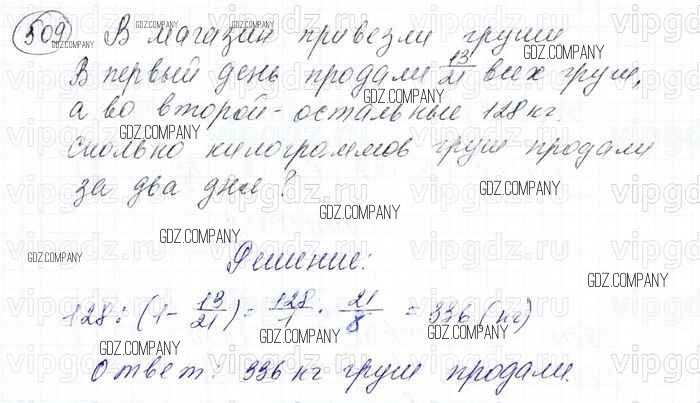 509 В магазин привезли груши
В первый день продали 13/21 всех груш,
а во второй - остальные 128 кг.
Сколько килограммов груш продали
за два дня?
Решение:
128 : (1 - 13/21) = 128/1 · 21/8 = 336 (кг)
Ответ: 336 кг груш продали.
GDZ.COMPANY
vipgdz.ru